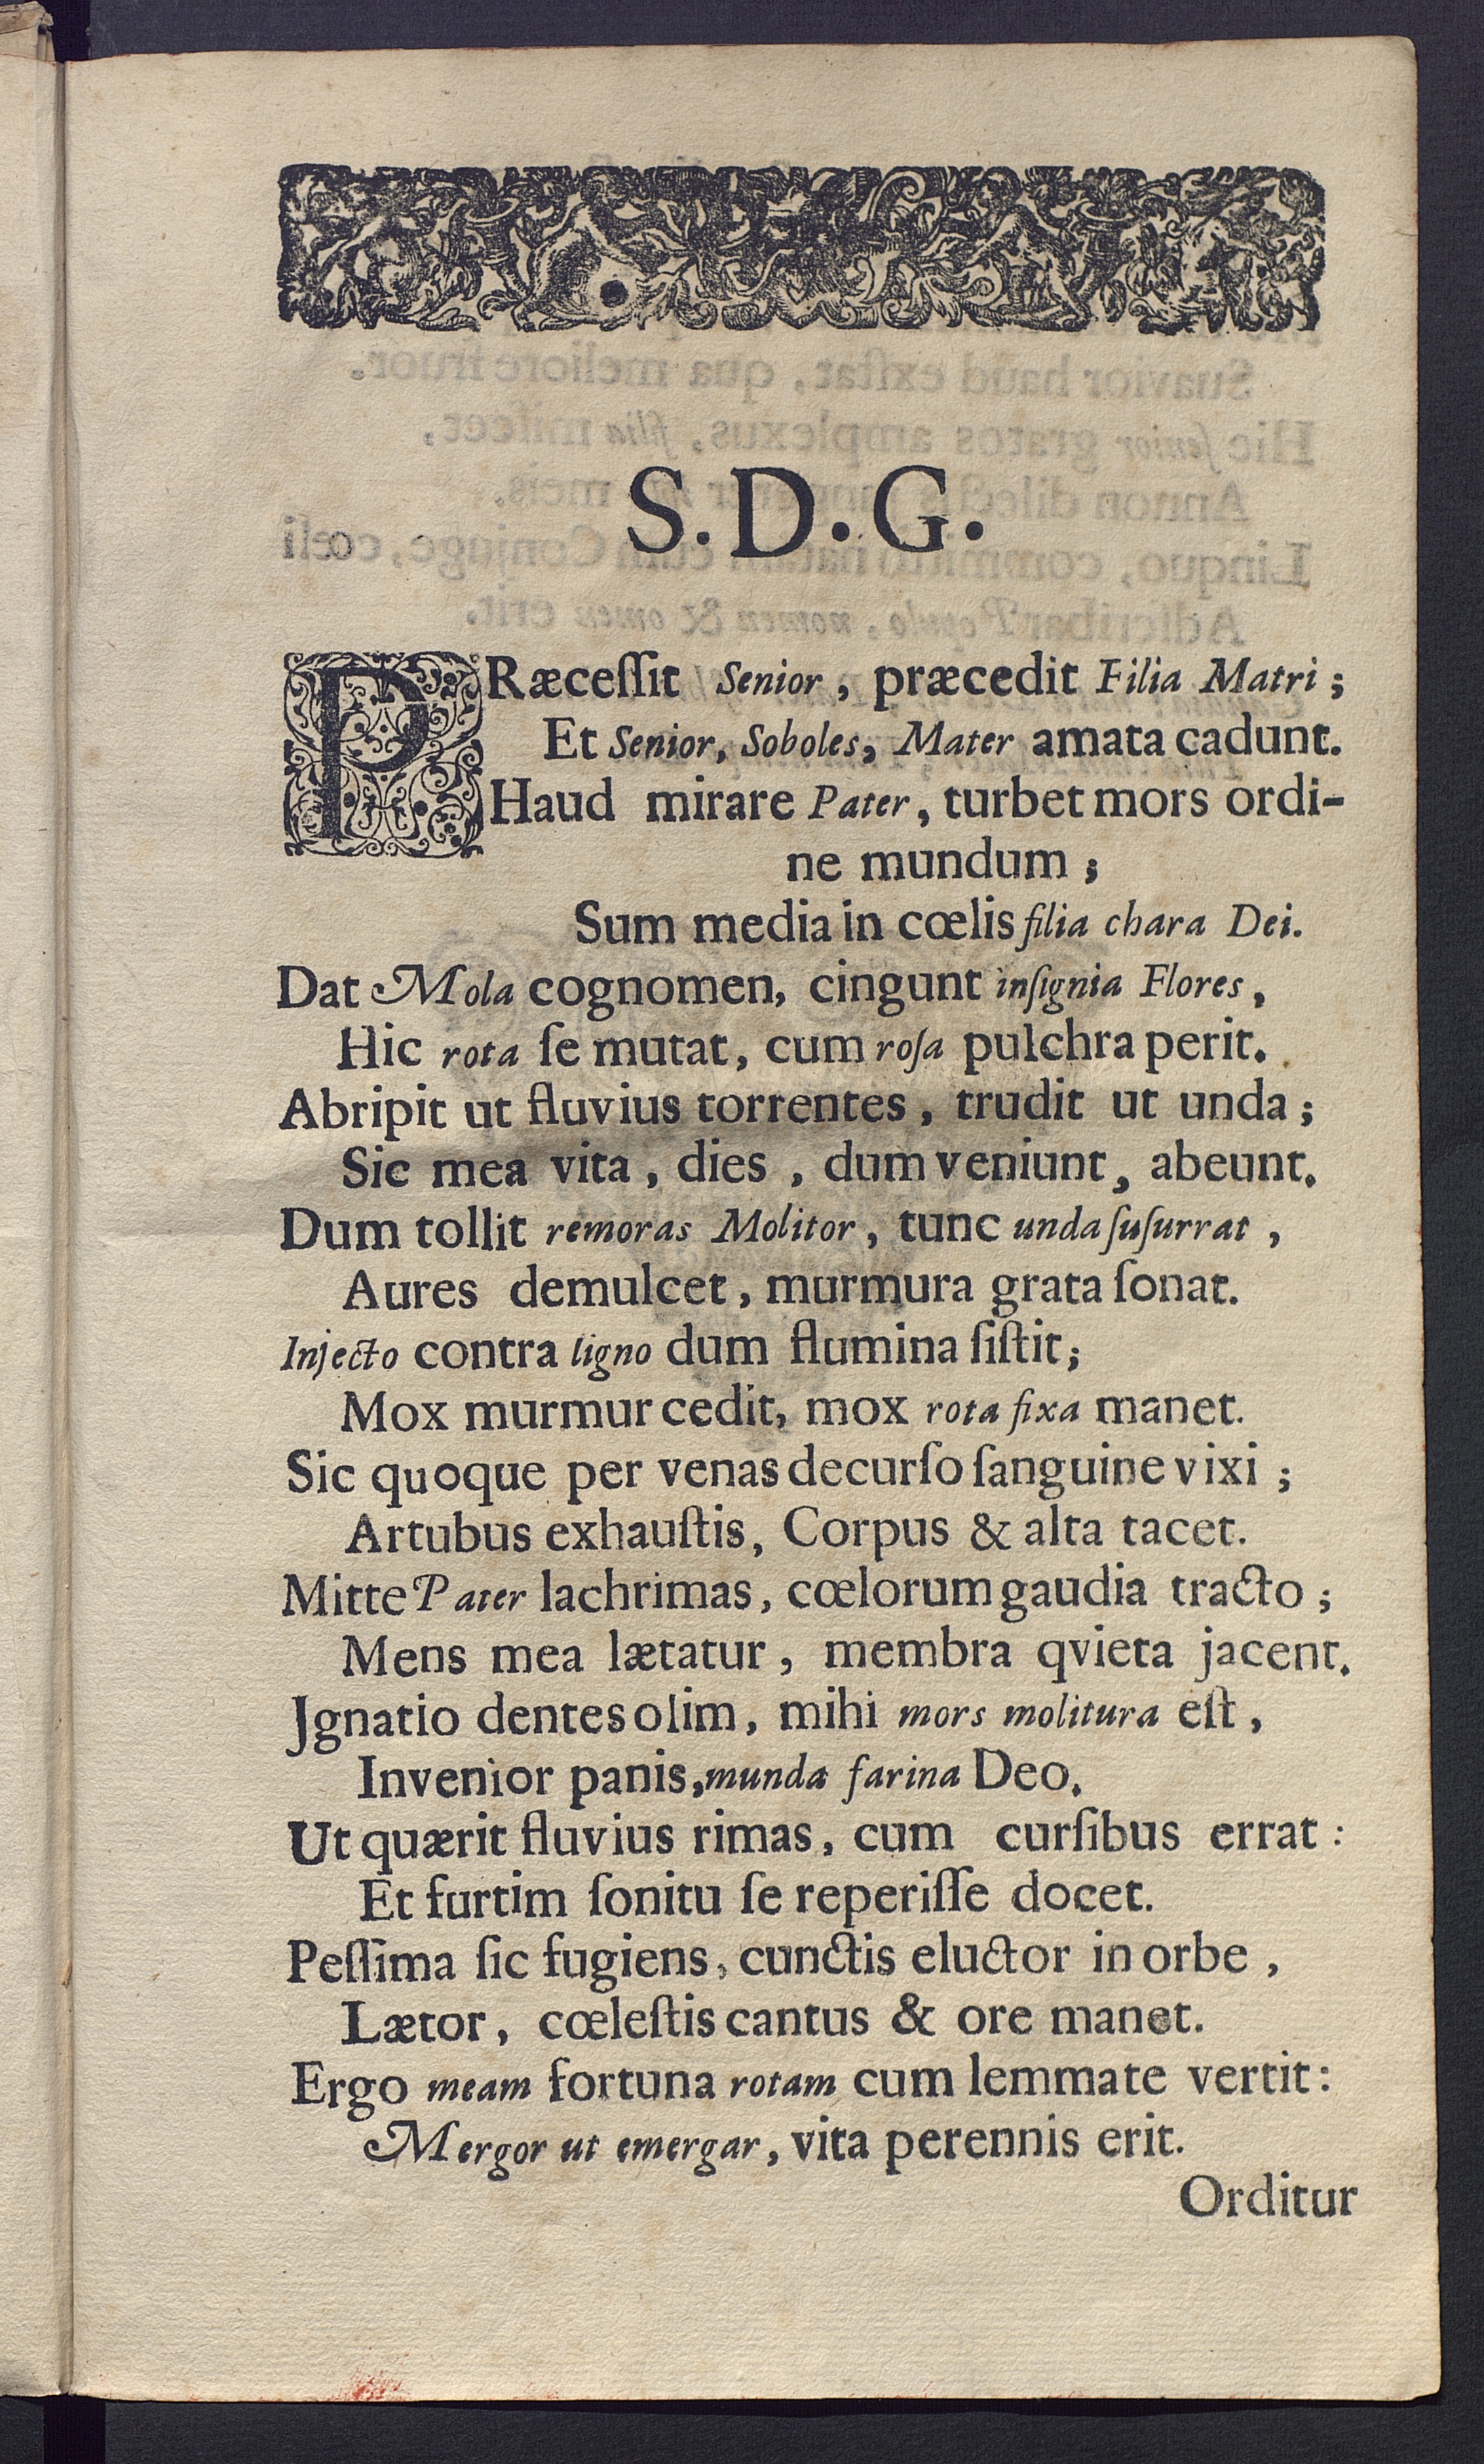 S. D. G.
PRæceſſit Senior, præcedit Filia Matri;
Et Senior, Soboles, Mater amata cadunt.
Haud mirare Pater, turbet mors ordi-
ne mundum;
Sum media in cœlis filia chara Dei.
Dat Mola cognomen, cingunt inſignia Flores,
Hic rota ſe mutat, cum roſa pulchra perit.
Abripit ut fluvius torrentes, trudit ut unda;
Sic mea vita, dies, dum veniunt, abeunt.
Dum tollit remoras Molitor, tunc unda ſuſurrat,
Aures demulcet, murmura grata ſonat.
Injecto contra ligno dum flumina ſiſtit;
Mox murmur cedit, mox rota fixa manet.
Sic quoque per venas decurſo ſanguine vixi;
Artubus exhauſtis, Corpus & alta tacet.
Mitte Pater lachrimas, cœlorum gaudia tracto;
Mens mea lætatur, membra qvieta jacent.
Jgnatio dentes olim, mihi mors molitura eſt,
Invenior panis, munda farina Deo.
Ut quærit fluvius rimas, cum curſibus errat:
Et furtim ſonitu ſe reperiſſe docet.
Peſſima ſic fugiens, cunctis eluctor in orbe,
Lætor, cœleſtis cantus & ore manet.
Ergo meam fortuna rotam cum lemmate vertit:
Mergor ut emergar, vita perennis erit.
Orditur